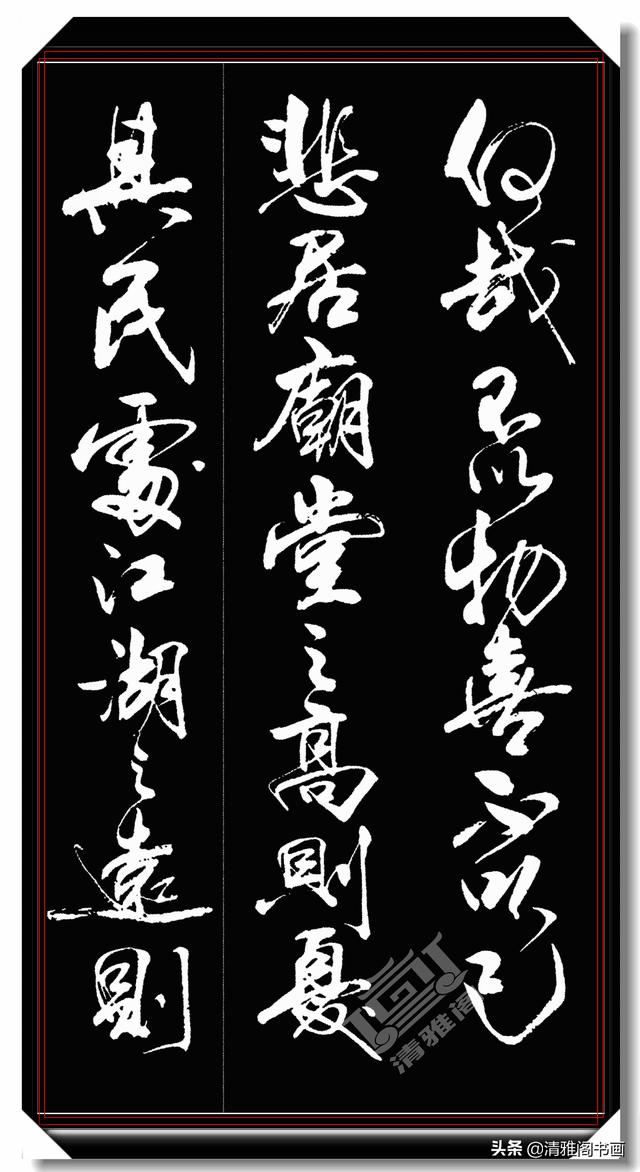 何哉不以物喜不以己
悲居廟堂之高則憂
其民處江湖之遠則
清雅阁
头条 @清雅阁书画